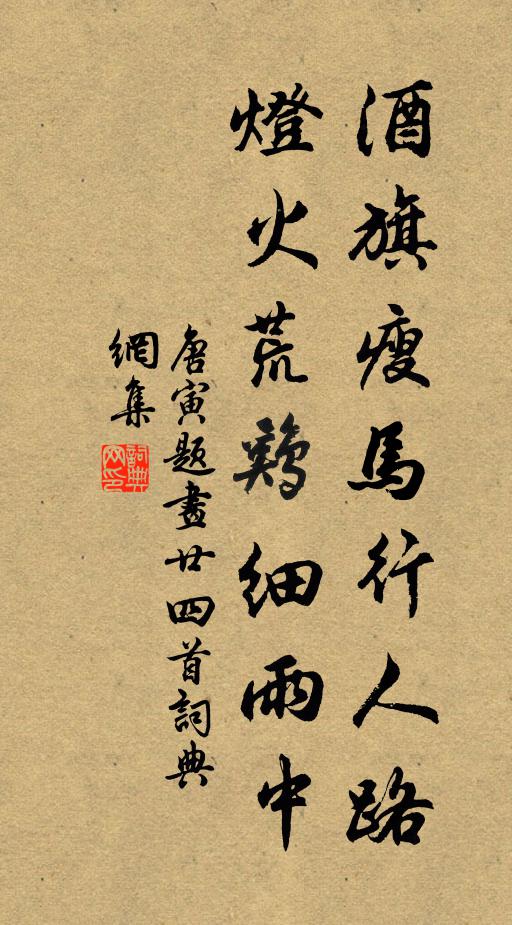 酒旗瘦馬行人路
燈火荒鷄細雨中
唐寅題畫廿四首詞典
網集
詞典
网印